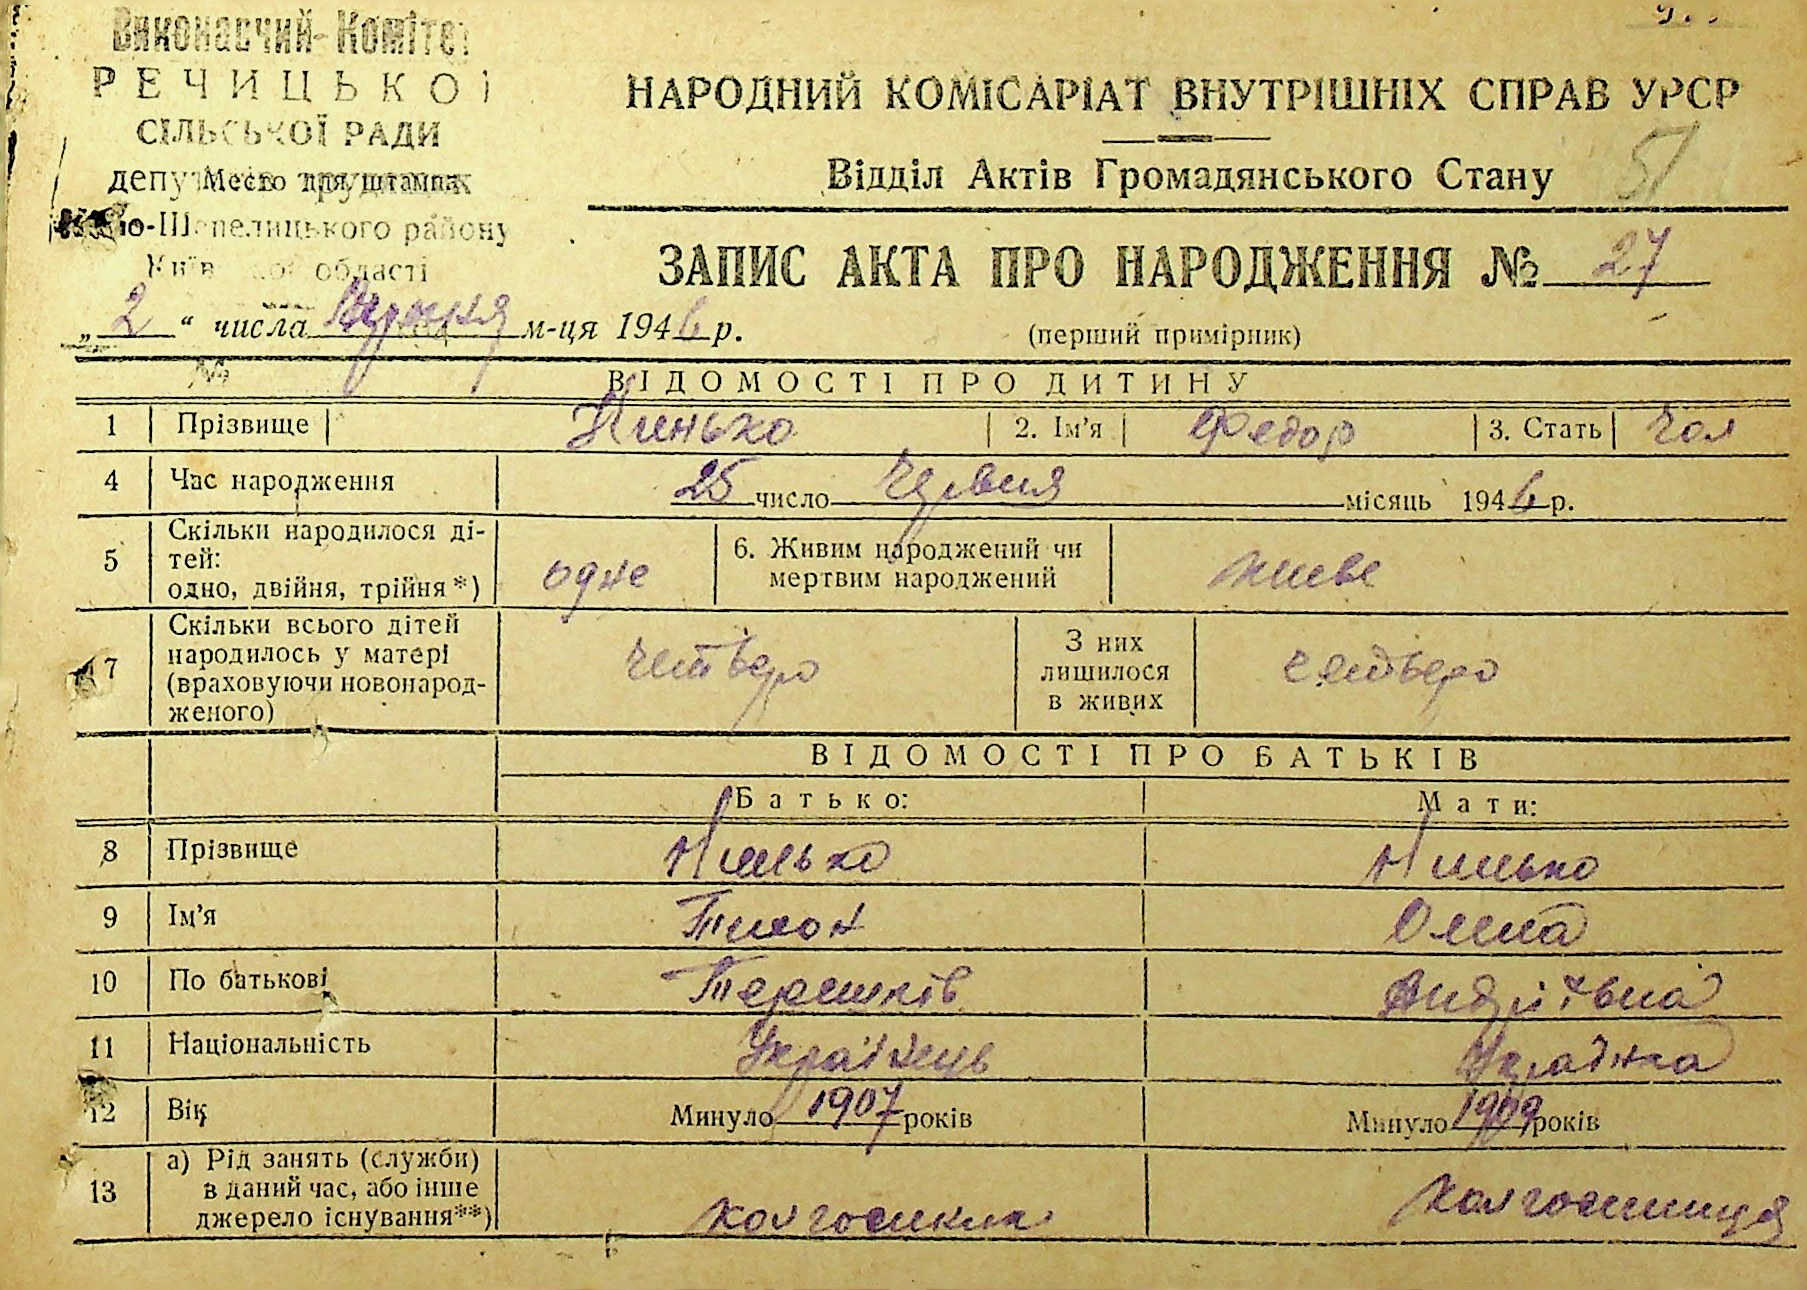 Виконавчий Комітет
РЕЧИЦЬКОЇ
СІЛЬСЬКОЇ РАДИ
депутатів трудящих
Место для штампа
Шепелицького району
Київської області
НАРОДНИЙ КОМІСАРІАТ ВНУТРІШНІХ СПРАВ УРСР
Відділ Актів Громадянського Стану
51
ЗАПИС АКТА ПРО НАРОДЖЕННЯ № 27
„2“ числа м-ця 1946 р.
(перший примірник)
№
ВІДОМОСТІ ПРО ДИТИНУ
1 Прізвище Нинько 2. Ім'я Федор 3. Стать Чол
4 Час народження 25 число Червня місяць 1946 р.
5 Скільки народилося ді-
тей:
одно, двійня, трійня*) одне
6. Живим народжений чи
мертвим народжений живе
7 Скільки всього дітей
народилось у матері
(враховуючи новонарод-
женого) четверо
З них
лишилося
в живих четверо
ВІДОМОСТІ ПРО БАТЬКІВ
Батько: Мати:
8 Прізвище Нинько Нинько
9 Ім'я Тихон Олена
10 По батькові Терешків Андріївна
11 Національність Українець Українка
12 Вік Минуло 1907 років Минуло 1909 років
13 а) Рід занять (служби)
в даний час, або інше
джерело існування**) колгоспник колгоспниця